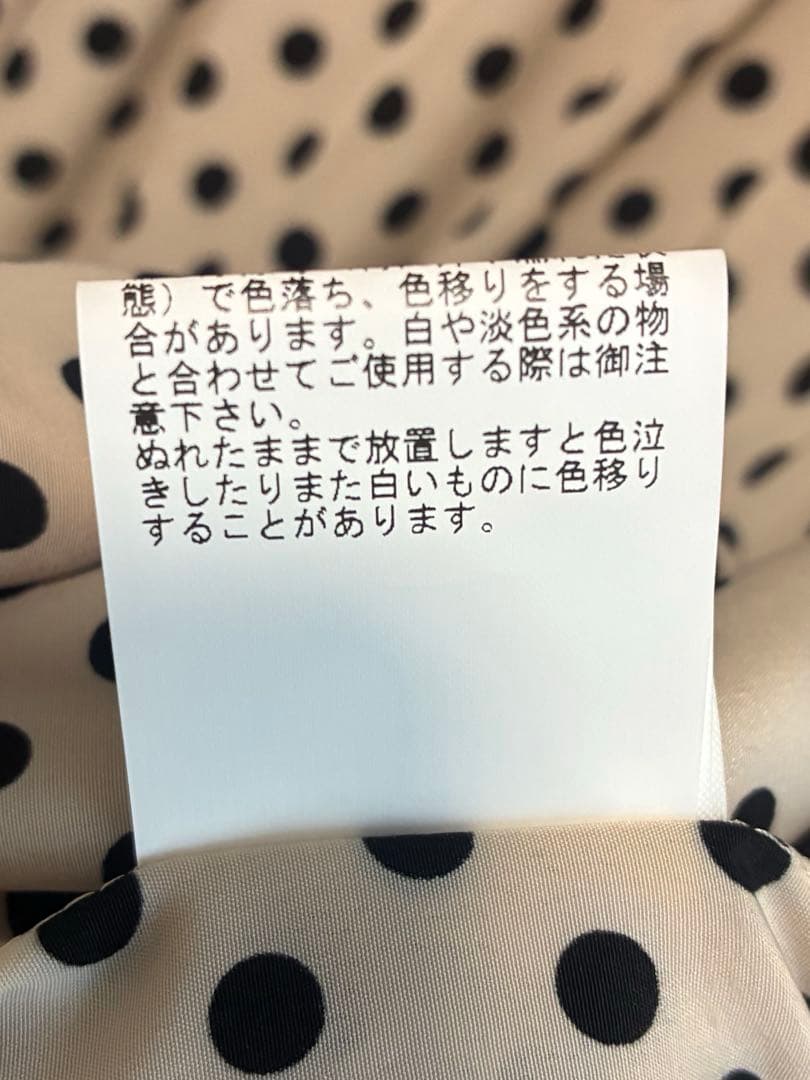 態）で色落ち、色移りをする場
合があります。白や淡色系の物
と合わせてご使用する際は御注
意下さい。
ぬれたままで放置しますと色泣
きしたりまた白いものに色移り
することがあります。